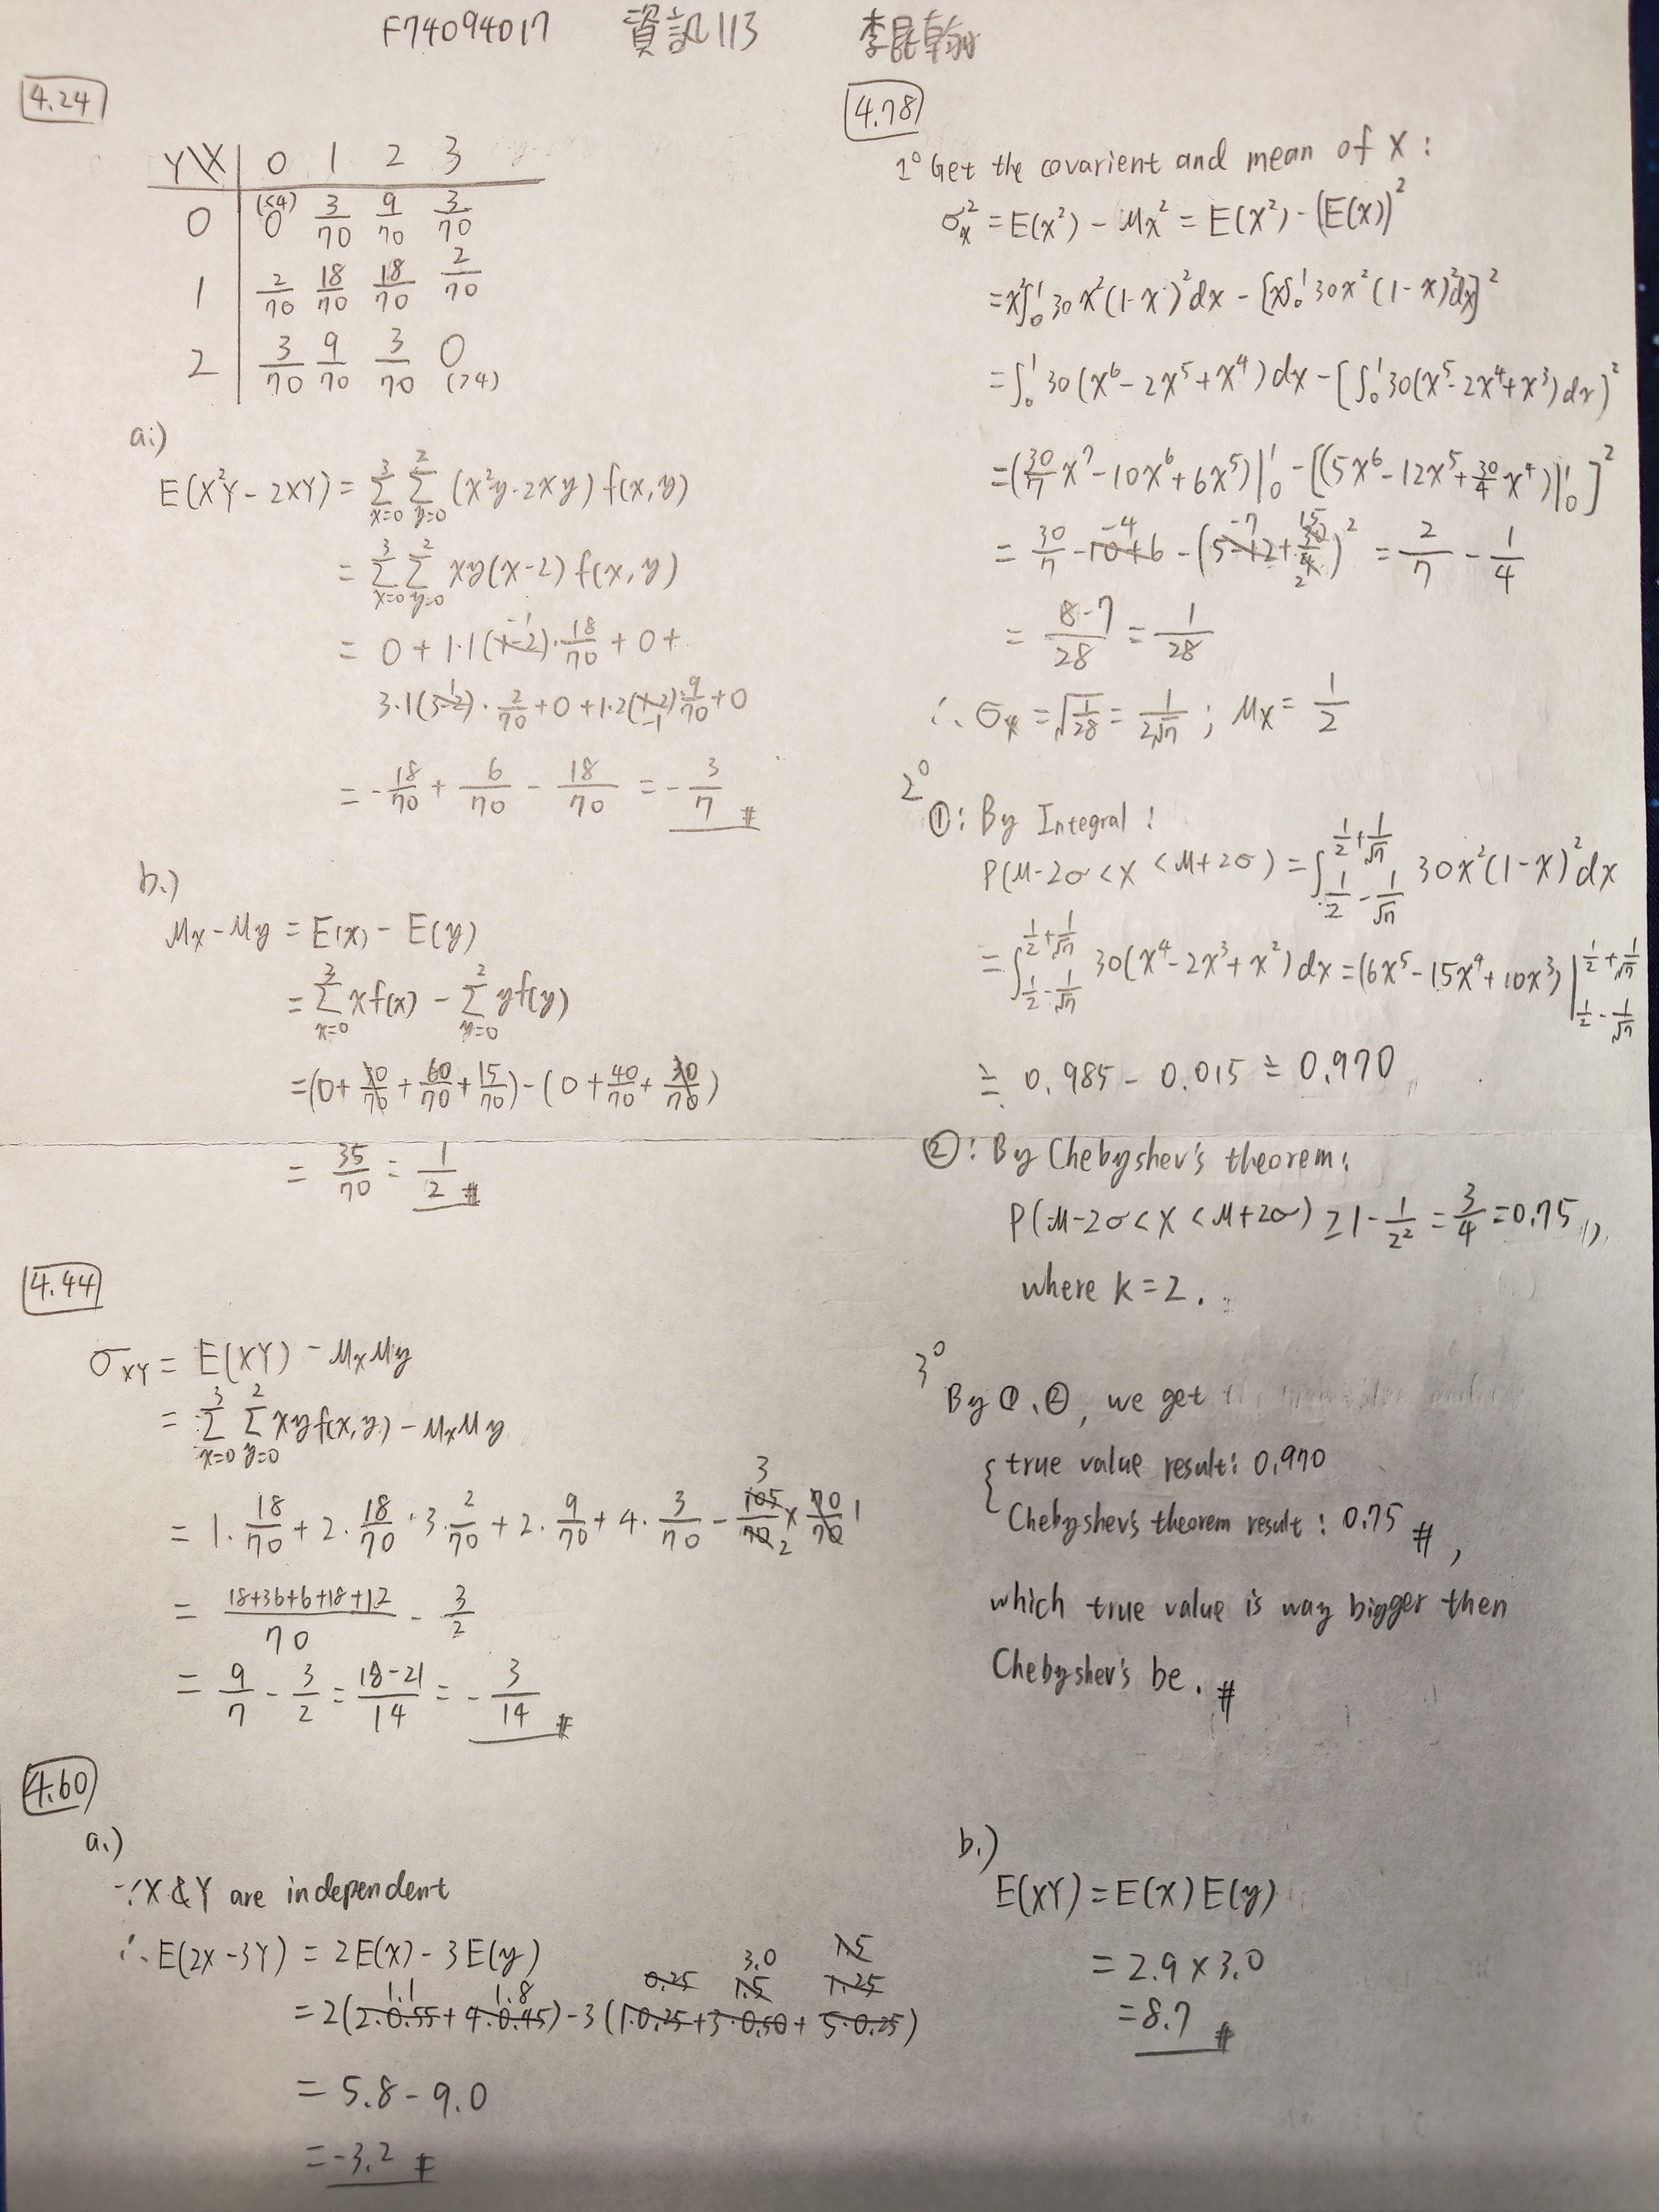 F74094017 資訊113 李昆翰
4.24
Y\X 0 1 2 3
0 (<4) 0 3/70 9/70 3/70
1 2/70 18/70 18/70 2/70
2 3/70 9/70 3/70 0 (>4)
a.)
E(X²Y - 2XY) = Σ_{x=0}^{3} Σ_{y=0}^{2} (x²y - 2xy) f(x,y)
= Σ_{x=0}^{3} Σ_{y=0}^{2} xy(x-2) f(x,y)
= 0 + 1·1(1-2)·18/70 + 0 +
3·1(3-2)·2/70 + 0 + 1·2(1-2)·9/70 + 0
= -18/70 + 6/70 - 18/70 = -3/7 #
b.)
μx - μy = E(x) - E(y)
= Σ_{x=0}^{3} x f(x) - Σ_{y=0}^{2} y f(y)
= (0 + 30/70 + 60/70 + 15/70) - (0 + 40/70 + 30/70)
= 35/70 = 1/2 #
4.44
σXY = E(XY) - μxμy
= Σ_{x=0}^{3} Σ_{y=0}^{2} xy f(x,y) - μxμy
= 1·18/70 + 2·18/70 + 3·2/70 + 2·9/70 + 4·3/70 - 105/70 × 70/70
3 2 1
= (18+36+6+18+12)/70 - 3/2
= 9/7 - 3/2 = (18-21)/14 = -3/14 #
4.60
a.)
∵ X & Y are independent
∴ E(2X - 3Y) = 2E(x) - 3E(y)
1.1 1.8 0.25 1.5 3.0 1.25 1.5
= 2(2·0.55 + 4·0.45) - 3(1·0.25 + 3·0.50 + 5·0.25)
= 5.8 - 9.0
= -3.2 #
b.)
E(XY) = E(X)E(y)
= 2.9 × 3.0
= 8.7 #
4.78
1° Get the covarient and mean of X :
σx² = E(x²) - μx² = E(X²) - (E(x))²
= x²∫₀¹ 30x²(1-x)²dx - [x∫₀¹ 30x²(1-x)²dx]²
= ∫₀¹ 30(x⁶ - 2x⁵ + x⁴)dx - [∫₀¹ 30(x⁵ - 2x⁴ + x³)dx]²
= (30/7 x⁷ - 10x⁶ + 6x⁵)|₀¹ - [(5x⁶ - 12x⁵ + 30/4 x⁴)|₀¹]²
-4 -7 15 2
= 30/7 - 10 + 6 - (5 - 12 + 30/4)² = 2/7 - 1/4
= (8-7)/28 = 1/28
∴ σx = √(1/28) = 1/(2√7) ; μx = 1/2
2°
①: By Integral :
P(μ-2σ < X < μ+2σ) = ∫_{1/2 - 1/√7}^{1/2 + 1/√7} 30x²(1-x)²dx
= ∫_{1/2 - 1/√7}^{1/2 + 1/√7} 30(x⁴ - 2x³ + x²)dx = (6x⁵ - 15x⁴ + 10x³)|_{1/2 - 1/√7}^{1/2 + 1/√7}
≒ 0.985 - 0.015 ≒ 0.970
②: By Chebyshev's theorem:
P(μ-2σ < X < μ+2σ) ≥ 1 - 1/2² = 3/4 = 0.75,
where k = 2.
3°
By ①、②, we get
{ true value result: 0.970
Chebyshev's theorem result : 0.75 #,
which true value is way bigger then
Chebyshev's be. #